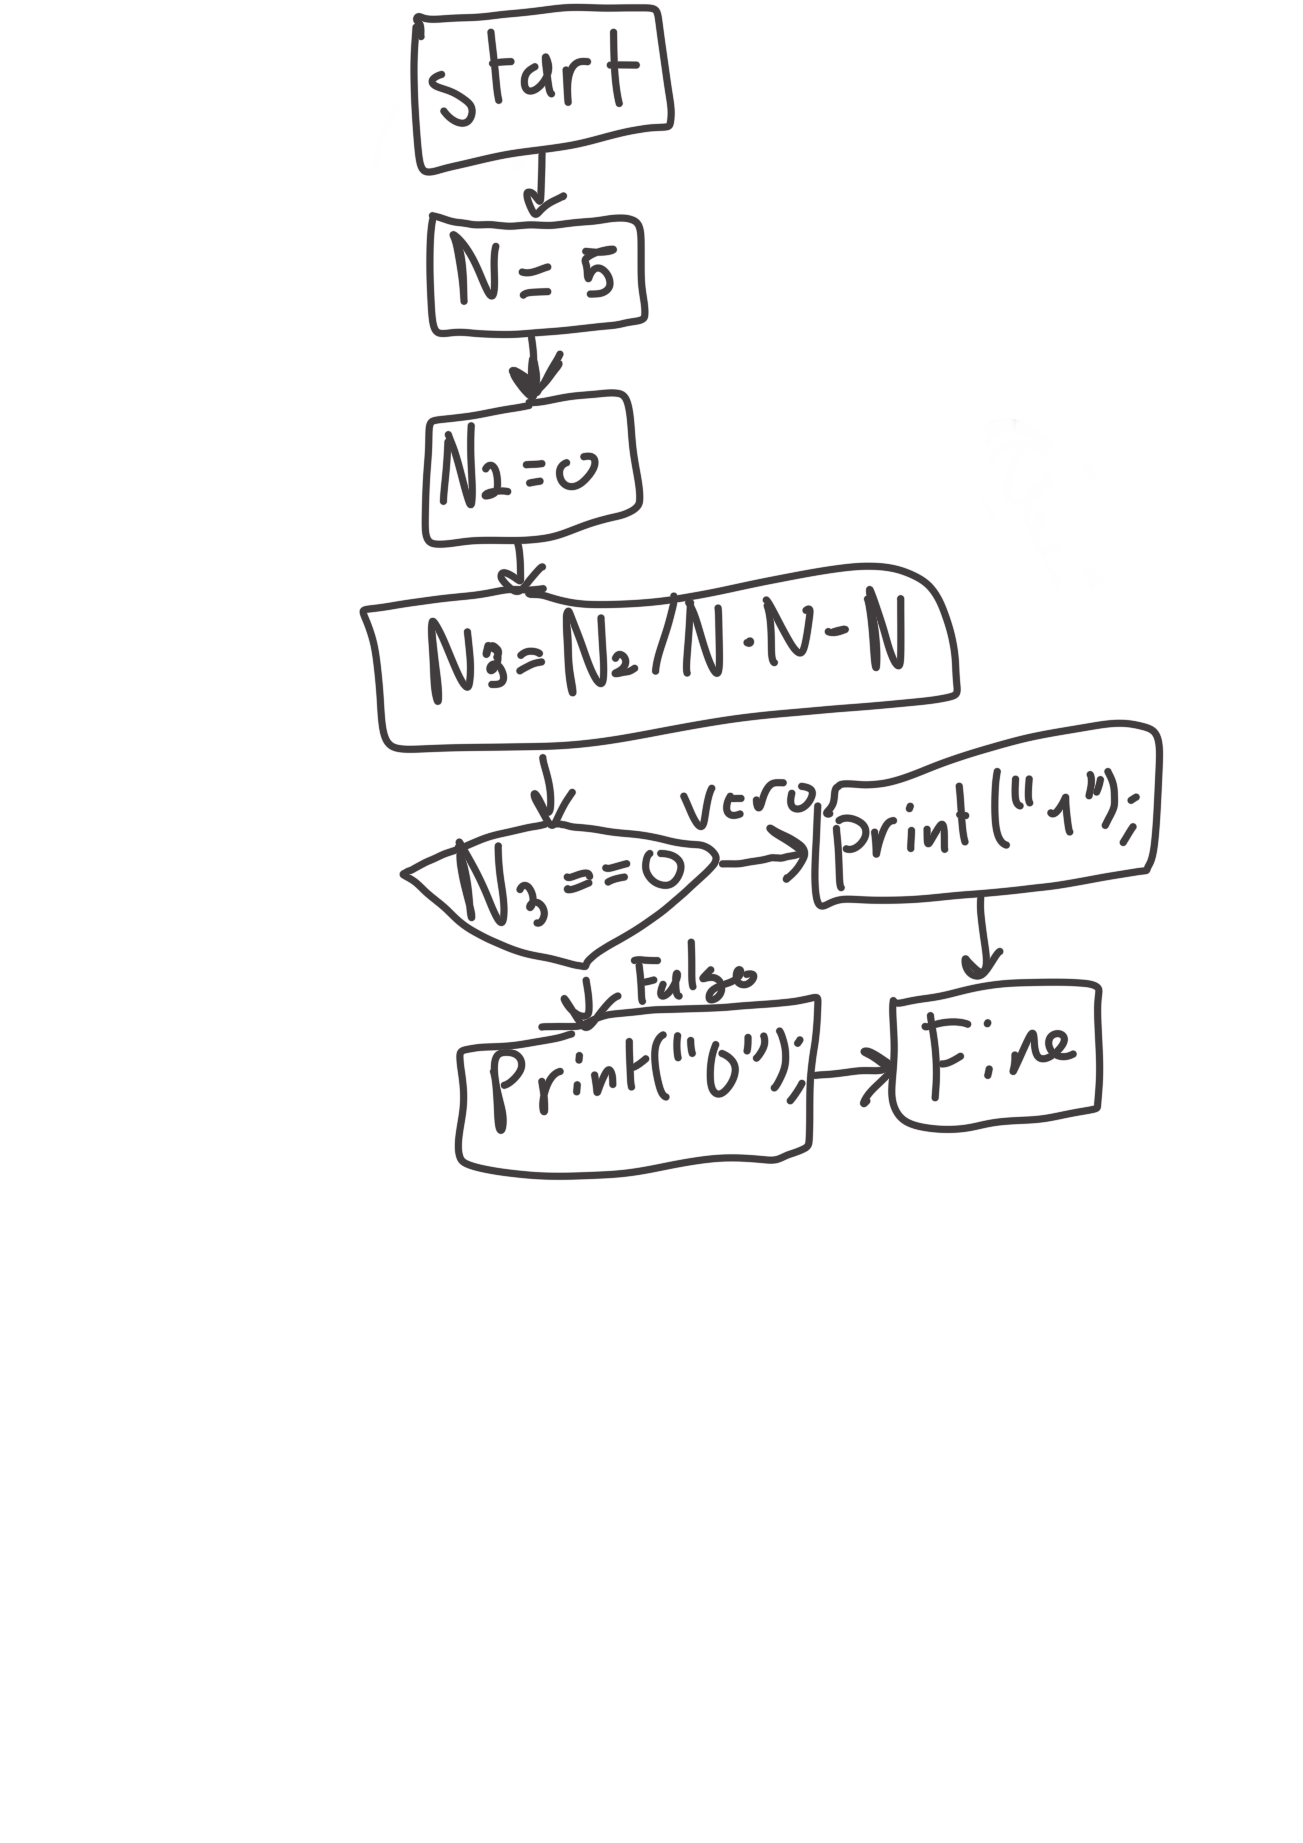 start
N = 5
N2=0
N3=N2/N·N-N
N3==0
vero
print("1");
Falso
Print("0");
Fine